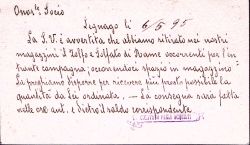 Onor.le Socio
Legnago li 6/5 95
La S.V. è avvertita che abbiamo ritirato nei nostri
magazzini il Zolfo e Solfato di Rame occorrenti per l'im-
nente campagna; occorrendoci spazio in magazzino
La preghiamo disporre per ricevere più presto possibile la
quantità da Lei ordinata. — La consegna sarà fatta
nelle ore ant. e dietro il saldo corrispondente.